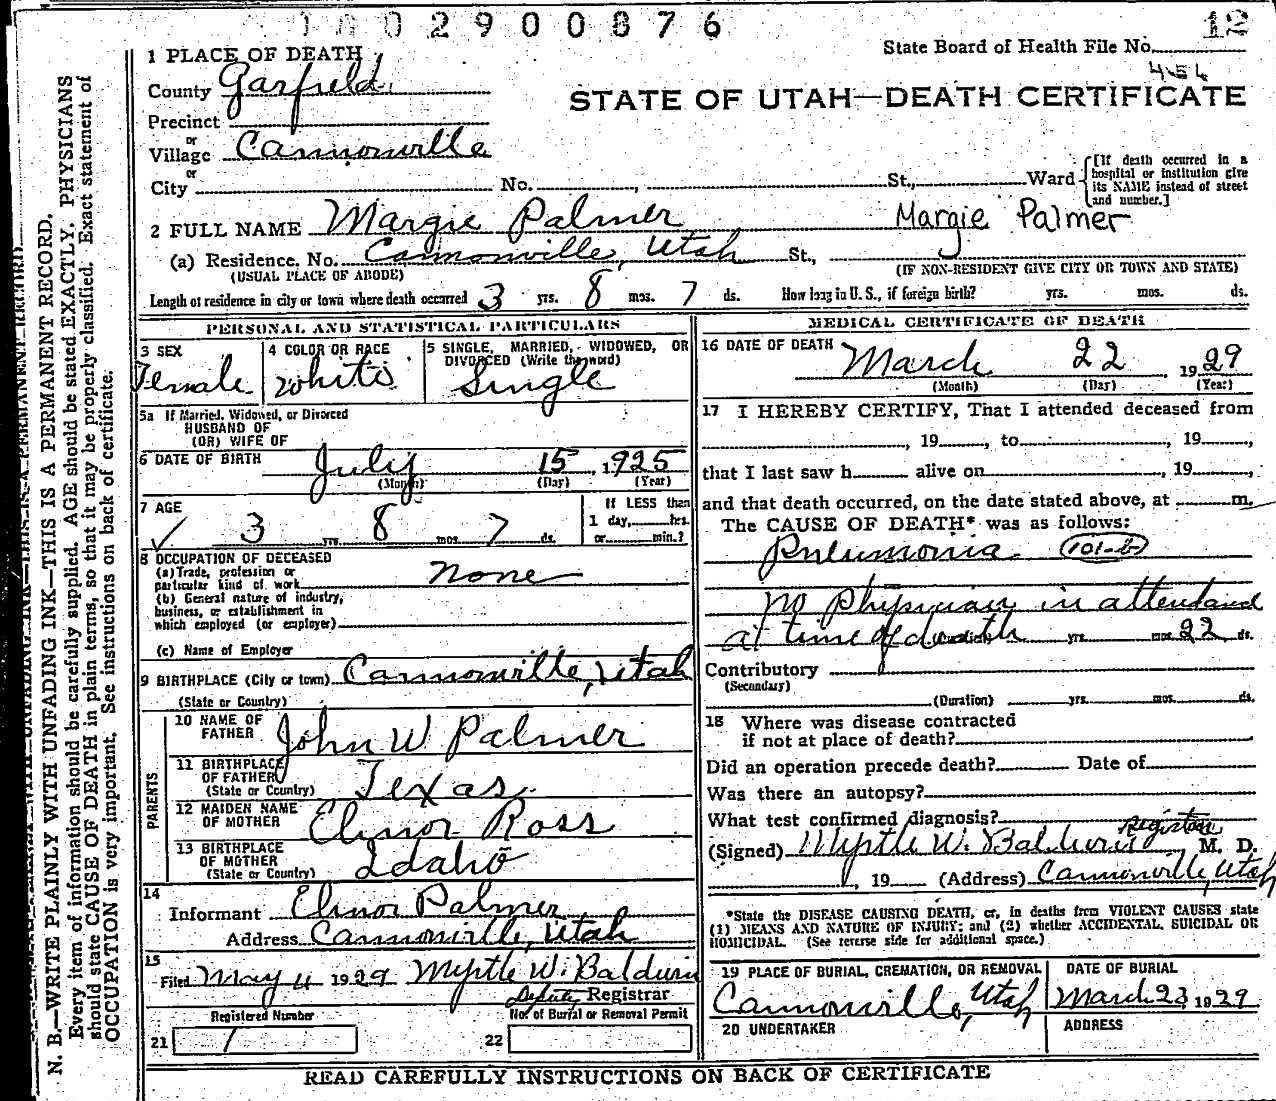 002900876
12
State Board of Health File No.
454
1 PLACE OF DEATH
County Garfield
STATE OF UTAH—DEATH CERTIFICATE
Precinct
or
Village Cannonville
or
City No. , St., Ward [If death occurred in a hospital or institution give its NAME instead of street and number.]
2 FULL NAME Margie Palmer Margie Palmer
(a) Residence. No. Cannonville, Utah St.,
(USUAL PLACE OF ABODE) (IF NON-RESIDENT GIVE CITY OR TOWN AND STATE)
Length of residence in city or town where death occurred 3 yrs. 8 mos. 7 ds. How long in U. S., if foreign birth? yrs. mos. ds.
PERSONAL AND STATISTICAL PARTICULARS
3 SEX
Female
4 COLOR OR RACE
White
5 SINGLE, MARRIED, WIDOWED, OR
DIVORCED (Write the word)
Single
5a If Married, Widowed, or Divorced
HUSBAND OF
(OR) WIFE OF
6 DATE OF BIRTH July 15, 1925
(Month) (Day) (Year)
7 AGE
3 yrs. 8 mos. 7 ds.
If LESS than
1 day, hrs.
or min.?
8 OCCUPATION OF DECEASED
(a) Trade, profession or
particular kind of work none
(b) General nature of industry,
business, or establishment in
which employed (or employer)
(c) Name of Employer
9 BIRTHPLACE (City or town) Cannonville, Utah
(State or Country)
PARENTS
10 NAME OF
FATHER John W Palmer
11 BIRTHPLACE
OF FATHER
(State or Country) Texas
12 MAIDEN NAME
OF MOTHER Elinor Ross
13 BIRTHPLACE
OF MOTHER
(State or Country) Idaho
14
Informant Elinor Palmer
Address Cannonville, Utah
15
Filed May 4 1929 Myrtle W. Baldwin
Deputy Registrar
Registered Number No. of Burial or Removal Permit
21 1 22
MEDICAL CERTIFICATE OF DEATH
16 DATE OF DEATH March 22, 1929
(Month) (Day) (Year)
17 I HEREBY CERTIFY, That I attended deceased from
, 19 , to , 19 ,
that I last saw h alive on , 19 ,
and that death occurred, on the date stated above, at m.
The CAUSE OF DEATH* was as follows:
Pneumonia 101-b
No physician in attendance
at time of death (Duration) yrs. mos. 22 ds.
Contributory
(Secondary)
(Duration) yrs. mos. ds.
18 Where was disease contracted
if not at place of death?
Did an operation precede death? Date of
Was there an autopsy?
What test confirmed diagnosis?
Registrar
(Signed) Myrtle W. Baldwin, M. D.
, 19 (Address) Cannonville, Utah
*State the DISEASE CAUSING DEATH, or, in deaths from VIOLENT CAUSES state
(1) MEANS AND NATURE OF INJURY: and (2) whether ACCIDENTAL, SUICIDAL OR
HOMICIDAL. (See reverse side for additional space.)
19 PLACE OF BURIAL, CREMATION, OR REMOVAL
Cannonville, Utah
DATE OF BURIAL
March 23, 1929
20 UNDERTAKER ADDRESS
READ CAREFULLY INSTRUCTIONS ON BACK OF CERTIFICATE
N. B.—WRITE PLAINLY WITH UNFADING INK—THIS IS A PERMANENT RECORD.
Every item of information should be carefully supplied. AGE should be stated EXACTLY. PHYSICIANS
should state CAUSE OF DEATH in plain terms, so that it may be properly classified. Exact statement of
OCCUPATION is very important. See instructions on back of certificate.